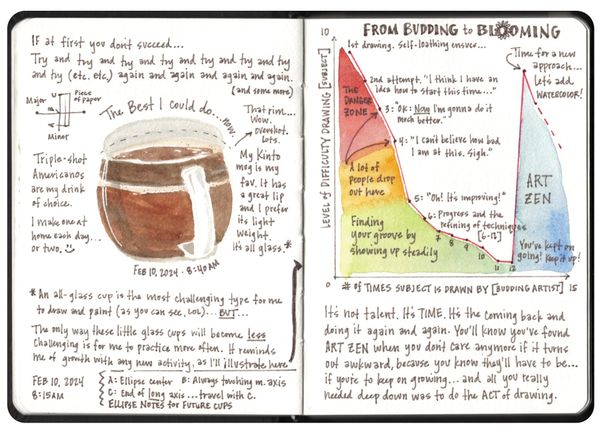 IF at first you don't succeed...
Try and try and try and try and try and try and try
and try (etc. etc.) again and again and again and again.
(and some more)
U
Major
Piece of paper
Minor
The Best I could do... now.
That rim...
Wow.
overshot.
Lots.
Triple-shot
Americanos
are my drink
of choice.
I make one at
home each day...
or two.
My Kinto
mog is my
fav. It has
a great lip
and I prefer
its light
weight.
It's all glass.*
FEB 10, 2024 - 8:40AM
*An all-glass cup is the most challenging type for me
to draw and paint (as you can see, LOL)... BUT...
The only way these little glass cups will become less
challenging is for me to practice more often. It reminds
me of growth with any new activity, as I'll illustrate here
FEB 10, 2024
8:15AM
A: Ellipse center B: Always touching m. axis
C: End of long axis... travel with C.
ELLIPSE NOTES FOR FUTURE CUPS
FROM BUDDING to BLOOMING
10
LEVEL of DIFFICULTY DRAWING [SUBJECT]
1st drawing. Self-loathing ensues...
2nd attempt. "I think I have an
idea how to start this time..."
3: "OK: Now I'm gonna do it
much better."
4: "I can't believe how bad
I am at this. Sigh."
5: "Oh! It's improving!"
6: Progress and the
refining of techniques
[6-12]
7 8 9 10 11 12
THE
DANGER
ZONE
A lot of
people drop
out here
Finding
your groove by
showing up steadily
Time for a new
approach...
Let's add
WATERCOLOR!
ART
ZEN
You've kept on
going! Keep it up!
0 # of TIMES SUBJECT IS DRAWN BY [BUDDING ARTIST] 15
It's not talent. It's TIME. It's the coming back and
doing it again and again. You'll know you've found
ART ZEN when you don't care anymore if it turns
out awkward, because you know they'll have to be...
if you're to keep on growing... and all you really
needed deep down was to do the ACT of drawing.